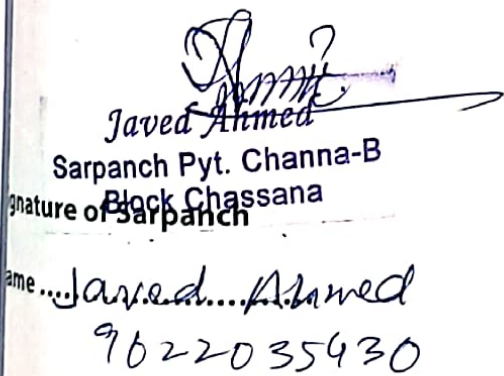 Javed Ahmed
Sarpanch Pyt. Channa-B
Block Chassana
gnature of Sarpanch
ame ....Javed....Ahmed
9622035430